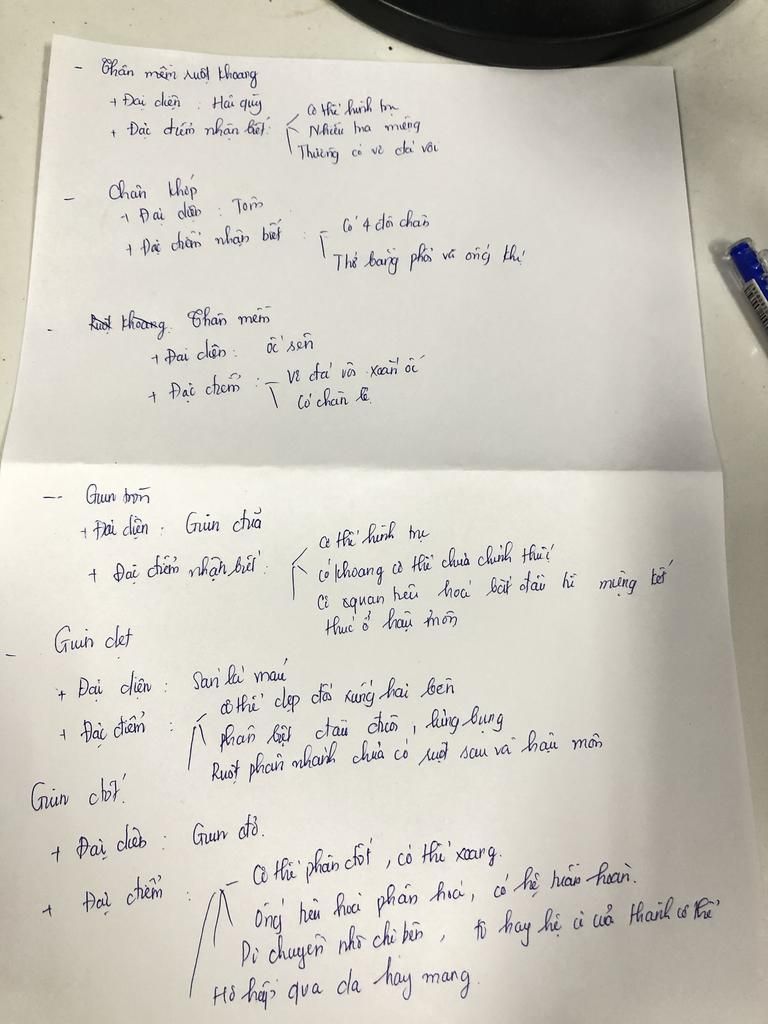 - Thân mềm ruột khoang
+ Đại diện : Hải quỳ
+ Đặc điểm nhận biết :
Cơ thể hình trụ
Nhiều tua miệng
Thường có vỏ đá vôi
- Chân khớp
+ Đại diện : Tôm
+ Đặc điểm nhận biết :
Có 4 đôi chân
Thở bằng phổi và ống khí
- Ruột khoang. Thân mềm
+ Đại diện : ốc sên
+ Đặc điểm :
Vỏ đá vôi xoắn ốc
Có chân lẻ
- Giun tròn
+ Đại diện : Giun đũa
+ Đặc điểm nhận biết :
Cơ thể hình trụ
có khoang cơ thể chưa chính thức
Cơ quan tiêu hoá bắt đầu từ miệng kết
thúc ở hậu môn
- Giun dẹt
+ Đại diện : Sán lá máu
+ Đặc điểm :
cơ thể dẹp đối xứng hai bên
phân biệt đầu đuôi, lưng bụng
Ruột phân nhánh chưa có ruột sau và hậu môn
Giun đốt.
+ Đại diện : Giun đỏ.
+ Đặc điểm :
- Cơ thể phân đốt, có thể xoang.
Ống tiêu hoá phân hoá, có hệ tuần hoàn.
Di chuyển nhờ chi bên, tơ hay hệ cơ của thành cơ thể
Hô hấp qua da hay mang.